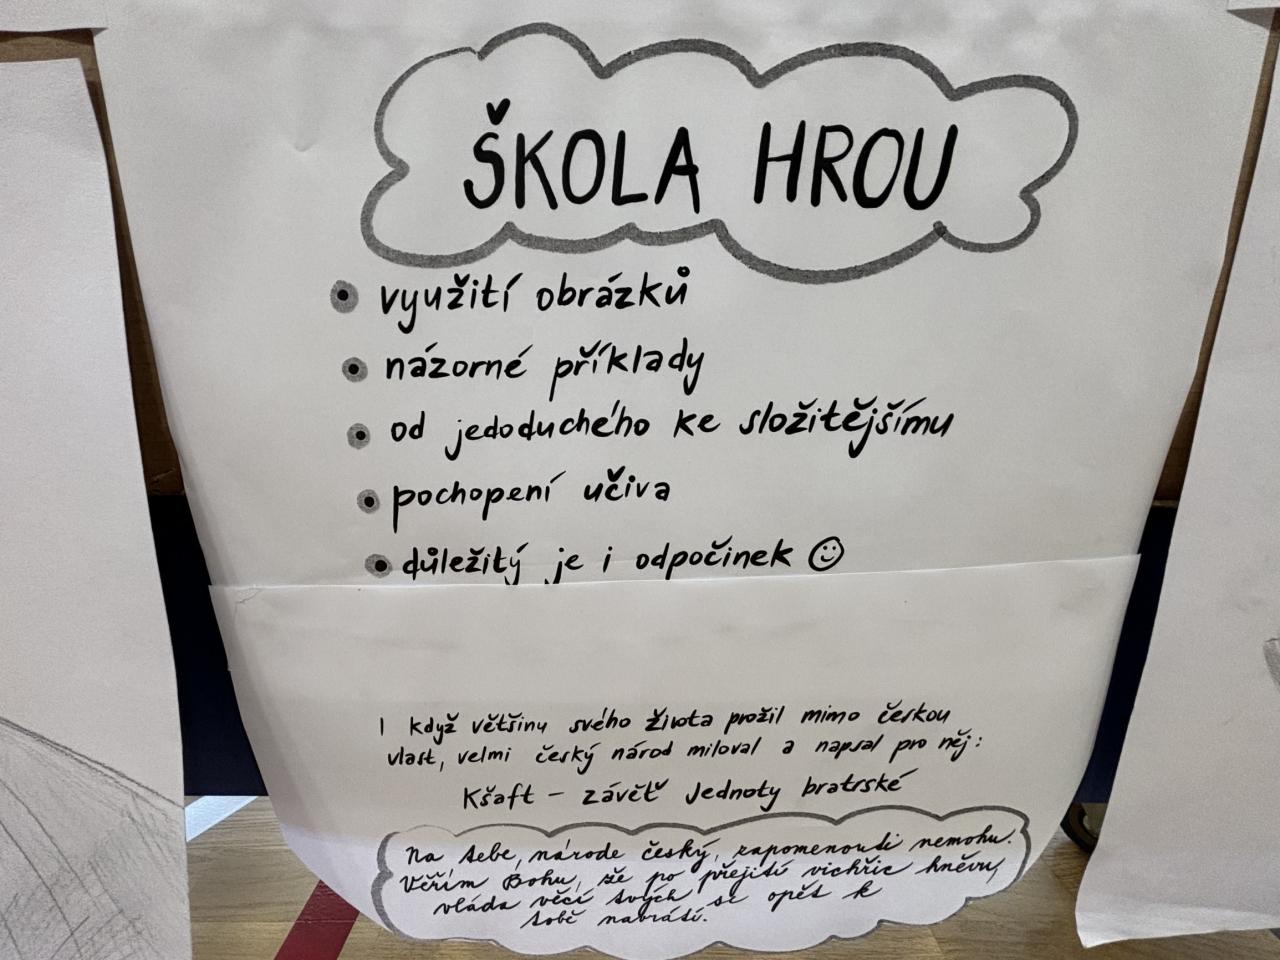 ŠKOLA HROU
• využití obrázků
• názorné příklady
• od jedoduchého ke složitějšímu
• pochopení učiva
• důležitý je i odpočinek ☺
I když většinu svého života prožil mimo českou
vlast, velmi český národ miloval a napsal pro něj:
Kšaft – závěť Jednoty bratrské
Na tebe, národe český, zapomenouti nemohu.
Věřím Bohu, že po přejití vichřic hněvu,
vláda věcí tvých se opět k
tobě navrátí.